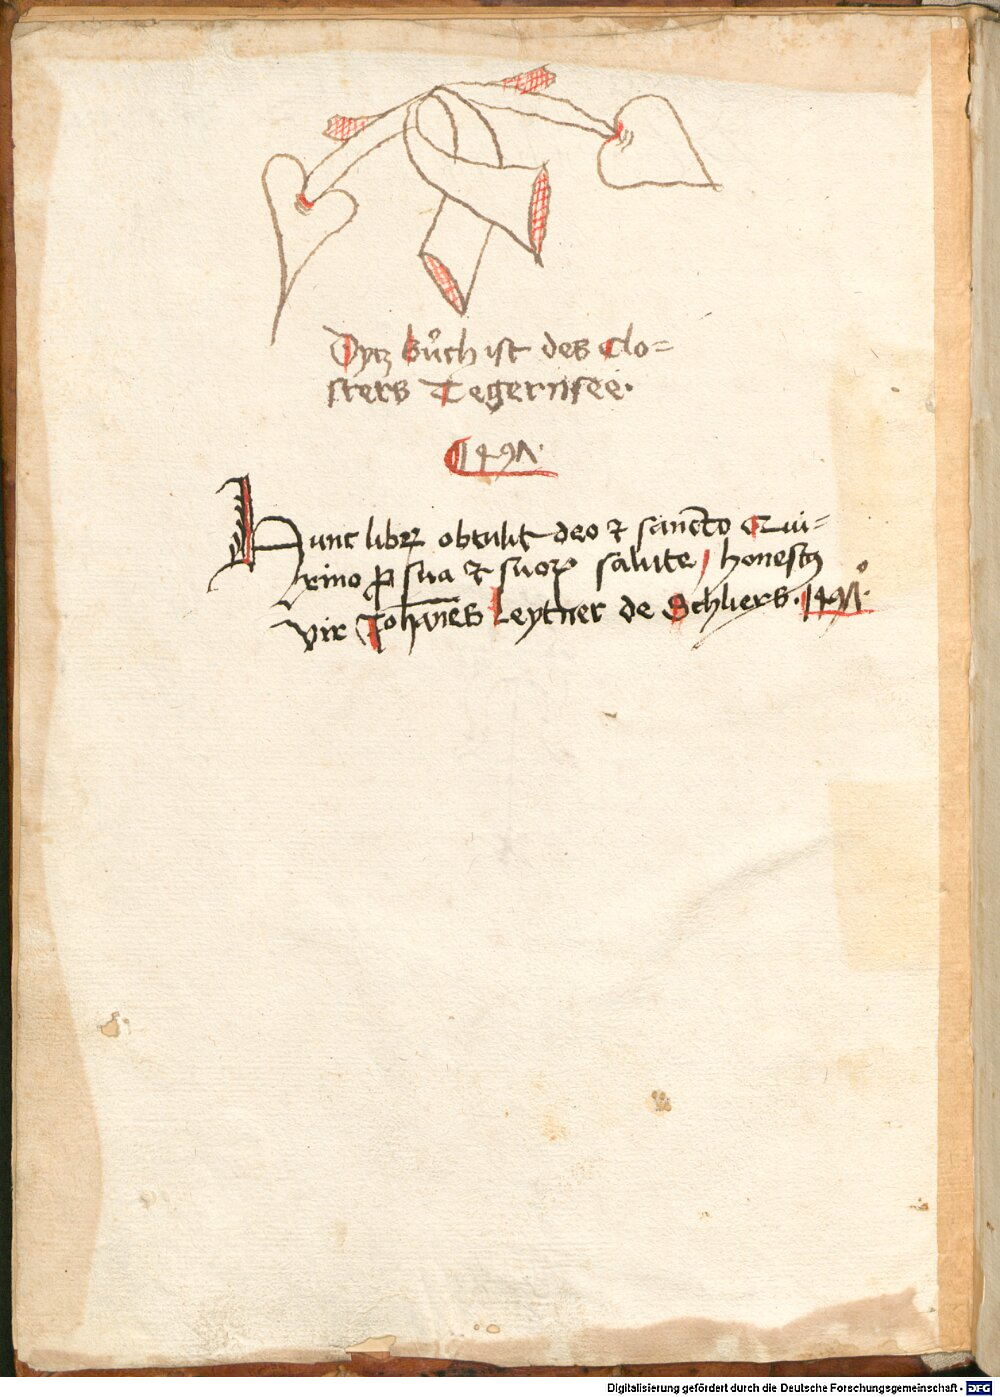 Dytz bůch ist des Clo=
sters Tegernsee.
1491.
Hunc libꝝ obtulit deo ⁊ sancto Qui=
rino ꝓ sua ⁊ suoꝝ salute, honestꝰ
vir Johannes Leytner de Schliers. 1491º.
Digitalisierung gefördert durch die Deutsche Forschungsgemeinschaft - DFG